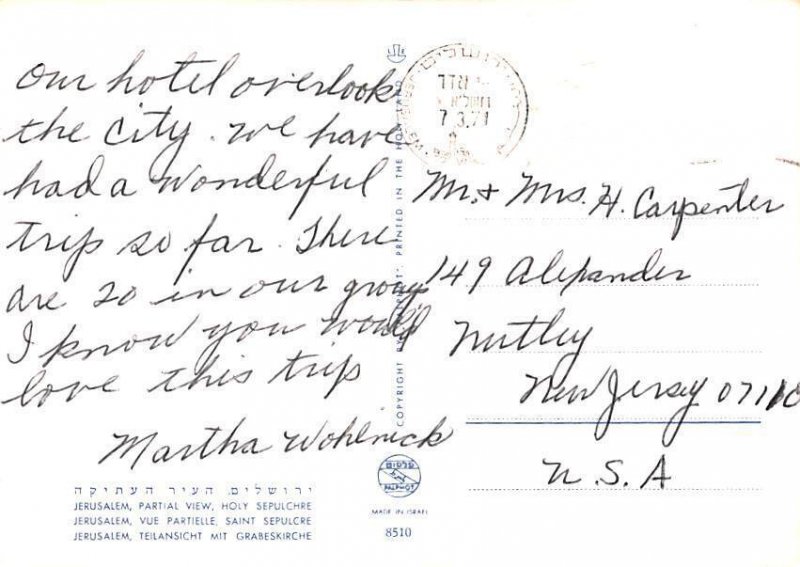 Our hotel overlook
the city. We have
had a wonderful
trip so far. There
are 20 in our group
I know you would
love this trip
Martha Wohlnick
Mr. & Mrs. H. Carpenter
149 Alexander
Nutley
New Jersey 07110
U.S.A
COPYRIGHT BY "PALPHOT". PRINTED IN THE HOLY LAND
7.3.71
ירושלים, העיר העתיקה
JERUSALEM, PARTIAL VIEW, HOLY SEPULCHRE
JERUSALEM, VUE PARTIELLE, SAINT SEPULCRE
JERUSALEM, TEILANSICHT MIT GRABESKIRCHE
פלפוט
PALPHOT
MADE IN ISRAEL
8510